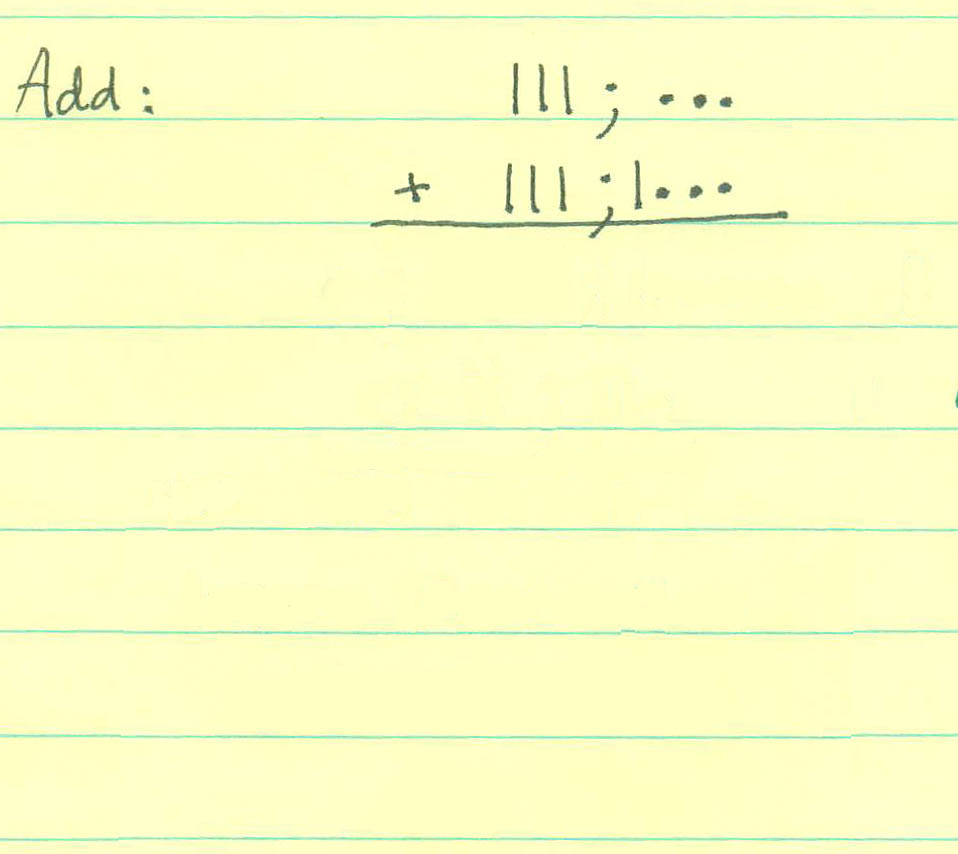 Add: ||| ; •••
+ ||| ; |•••